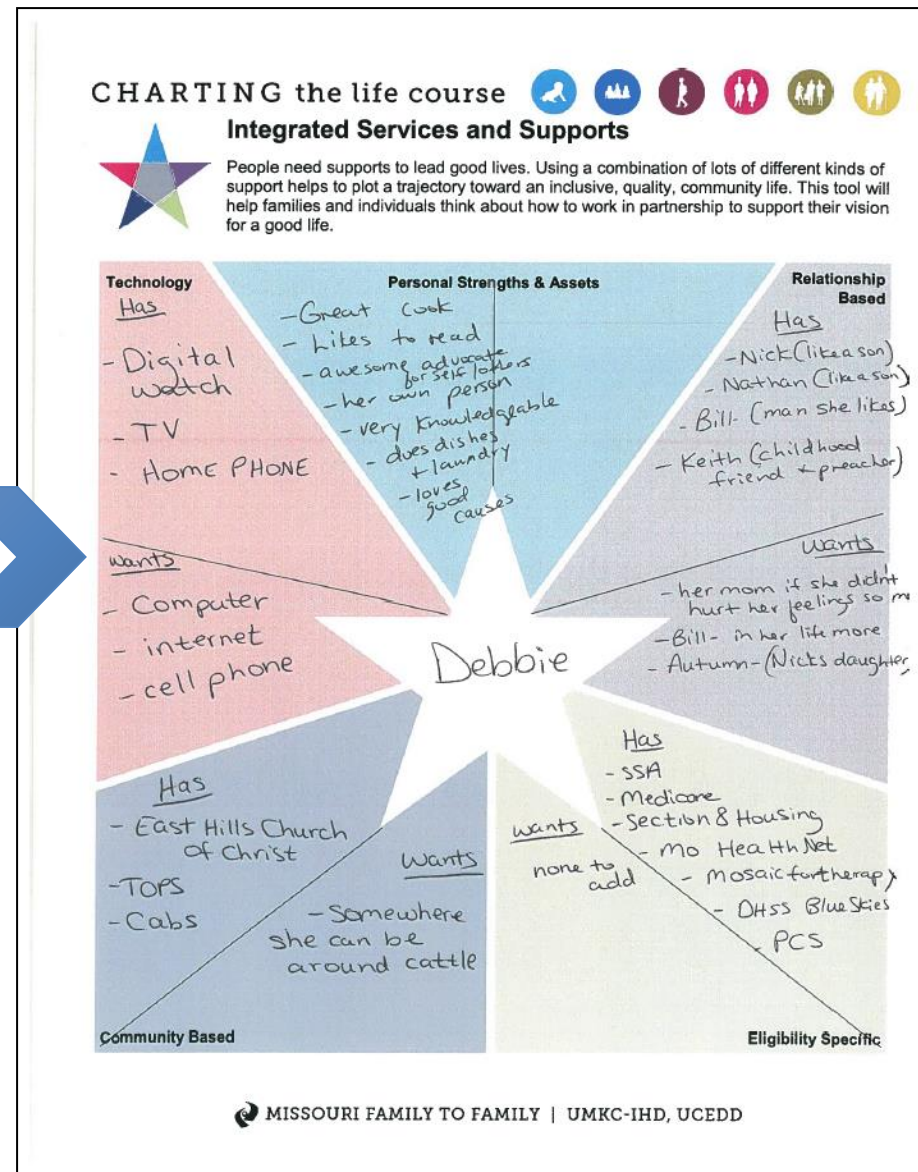 CHARTING the life course
Integrated Services and Supports
People need supports to lead good lives. Using a combination of lots of different kinds of
support helps to plot a trajectory toward an inclusive, quality, community life. This tool will
help families and individuals think about how to work in partnership to support their vision
for a good life.
Technology
Has
- Digital
watch
- TV
- HOME PHONE
wants
- Computer
- internet
- cell phone
Personal Strengths & Assets
- Great cook
- Likes to read
- awesome advocate
for self/others
- her own person
- very knowledgeable
- does dishes
+ laundry
- loves
good
causes
Relationship
Based
Has
- Nick (like a son)
- Nathan (like a son)
- Bill - (man she likes)
- Keith (childhood
friend + preacher)
wants
- her mom if she didn't
hurt her feelings so
- Bill - in her life more
- Autumn - (Nicks daughter
Debbie
Has
- East Hills Church
of Christ
- TOPS
- Cabs
Wants
- Somewhere
she can be
around cattle
Community Based
wants
none to
add
Has
- SSA
- Medicare
- Section 8 Housing
- Mo HealthNet
- Mosaic for therapy
- DHSS Blue Skies
- PCS
Eligibility Specific
MISSOURI FAMILY TO FAMILY | UMKC-IHD, UCEDD